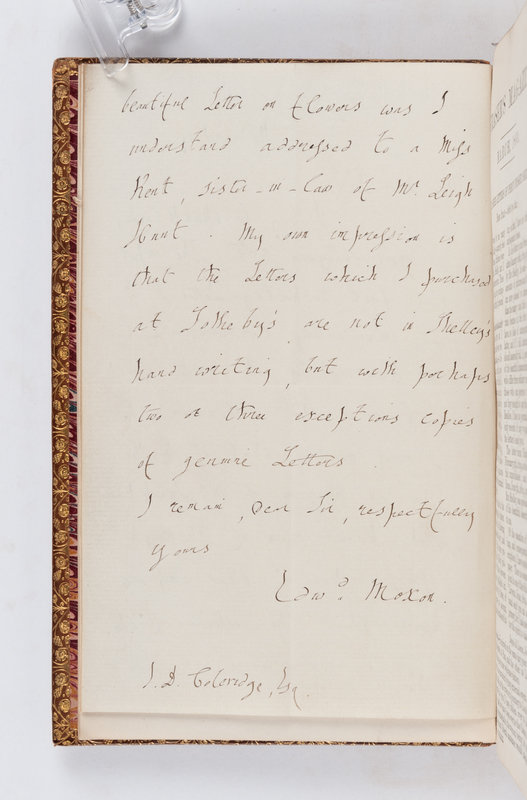 beautiful Letter on flowers was I
understand addressed to a Miss
Kent, sister-in-law of Mr. Leigh
Hunt. My own impression is
that the Letters which I purchased
at Sotheby's are not in Shelley's
hand writing, but with perhaps
two or three exceptions copies
of genuine Letters.
I remain, Dear Sir, respectfully
yours
Edwd. Moxon.
J. D. Coleridge, Esq.